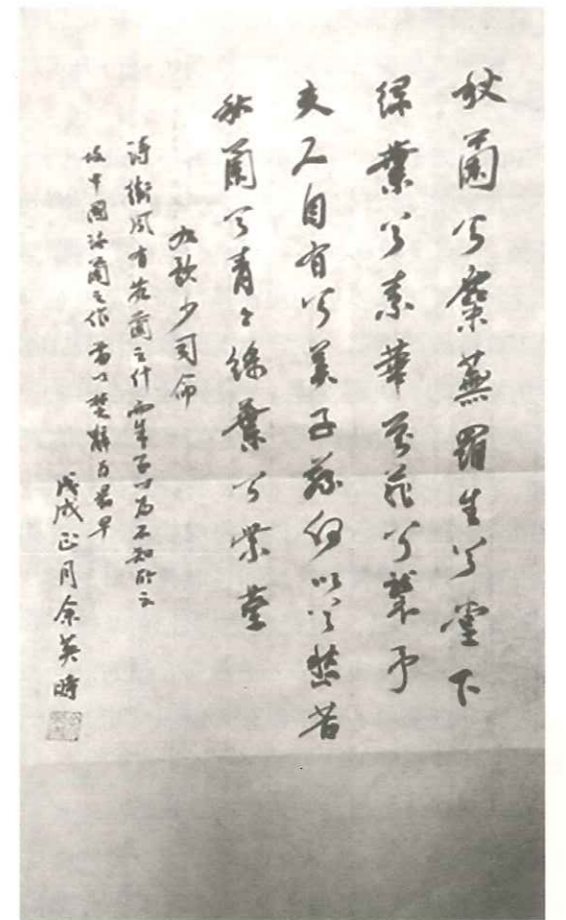 秋蘭兮麋蕪羅生兮堂下
綠葉兮素華芳菲兮襲予
夫人自有兮美子蓀何以兮愁苦
秋蘭兮青々綠葉兮紫莖
九歌少司命
詩衛風有芄蘭之什而朱子以為不知所云
故中國詠蘭之作當以楚辭為最早
戊戌正月余英時